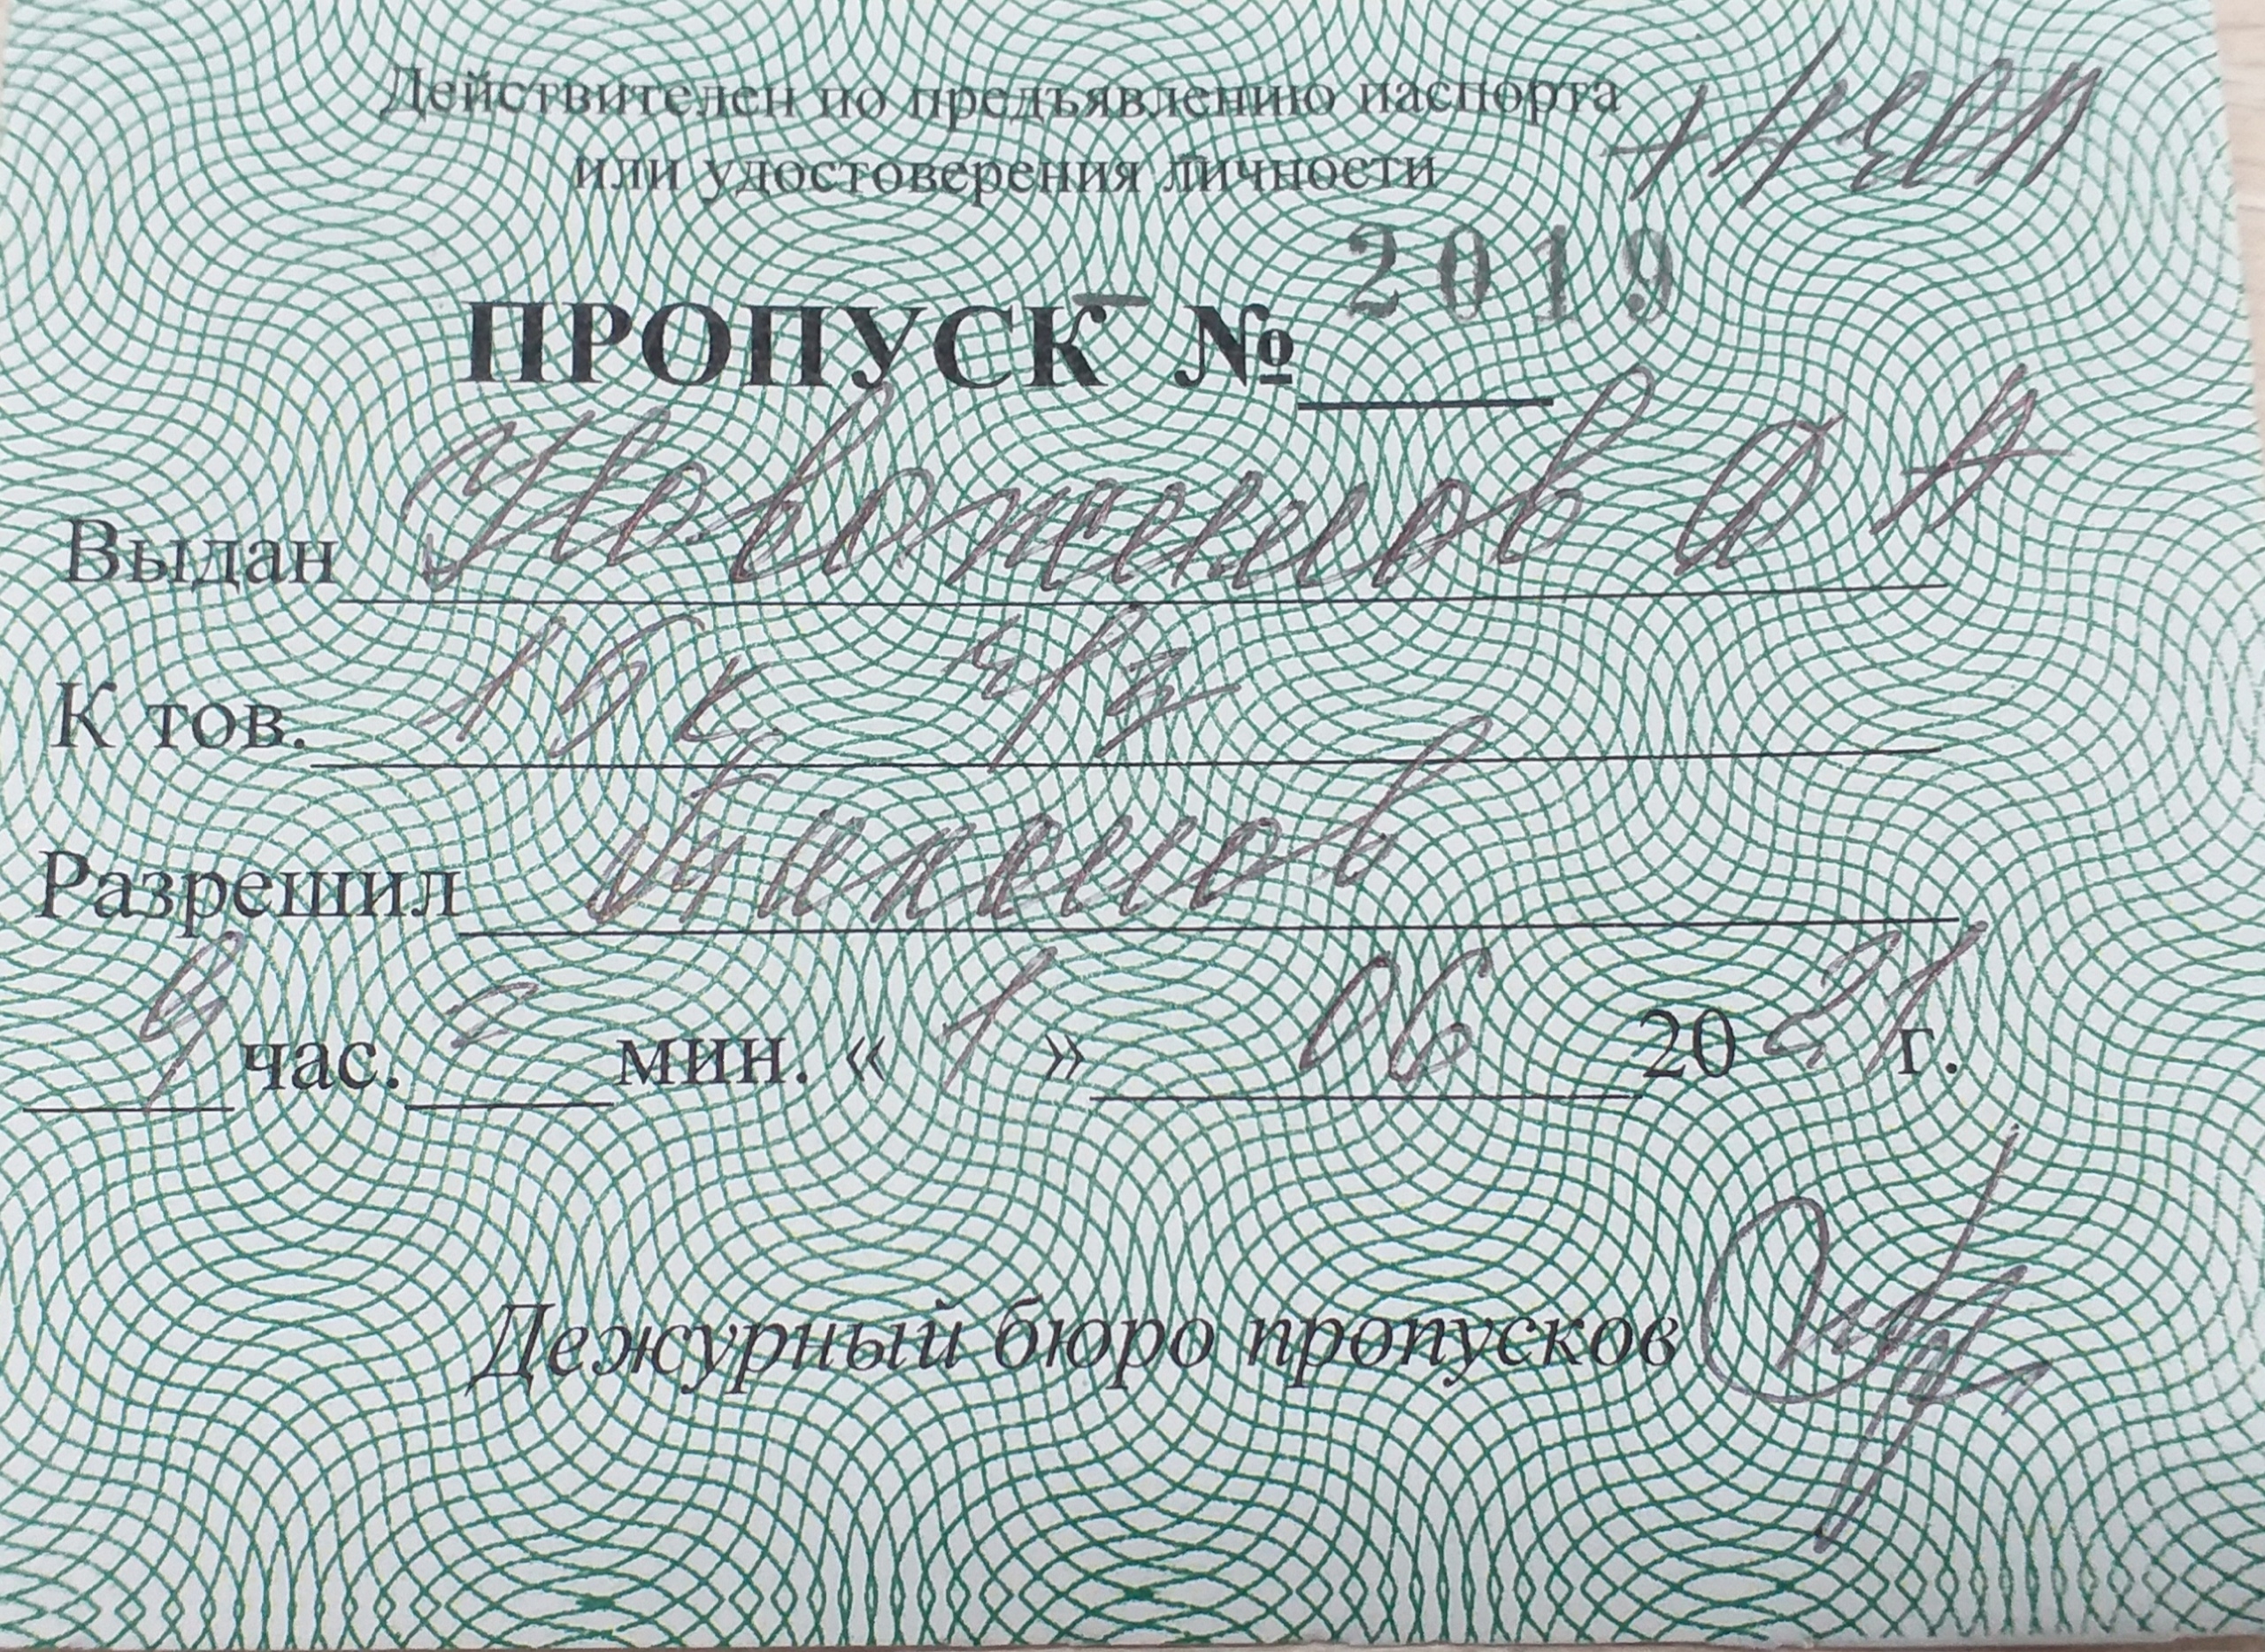 Действителен по предъявлению паспорта
или удостоверения личности + 1 чел
2019
ПРОПУСК №
Выдан Новожилов А А
К тов. 15 к
Разрешил
9 час. мин. « 1 » 06 20 21 г.
Дежурный бюро пропусков